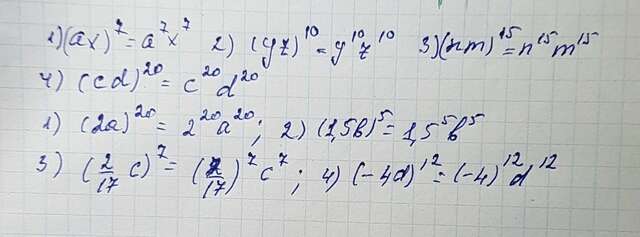 1) (ax)⁷ = a⁷x⁷ 2) (yz)¹⁰ = y¹⁰z¹⁰ 3) (nm)¹⁵ = n¹⁵m¹⁵
4) (cd)²⁰ = c²⁰d²⁰
1) (2a)²⁰ = 2²⁰a²⁰; 2) (1,5b)⁵ = 1,5⁵b⁵
3) (2/17 c)⁷ = (2/17)⁷c⁷; 4) (-4d)¹² = (-4)¹²d¹²